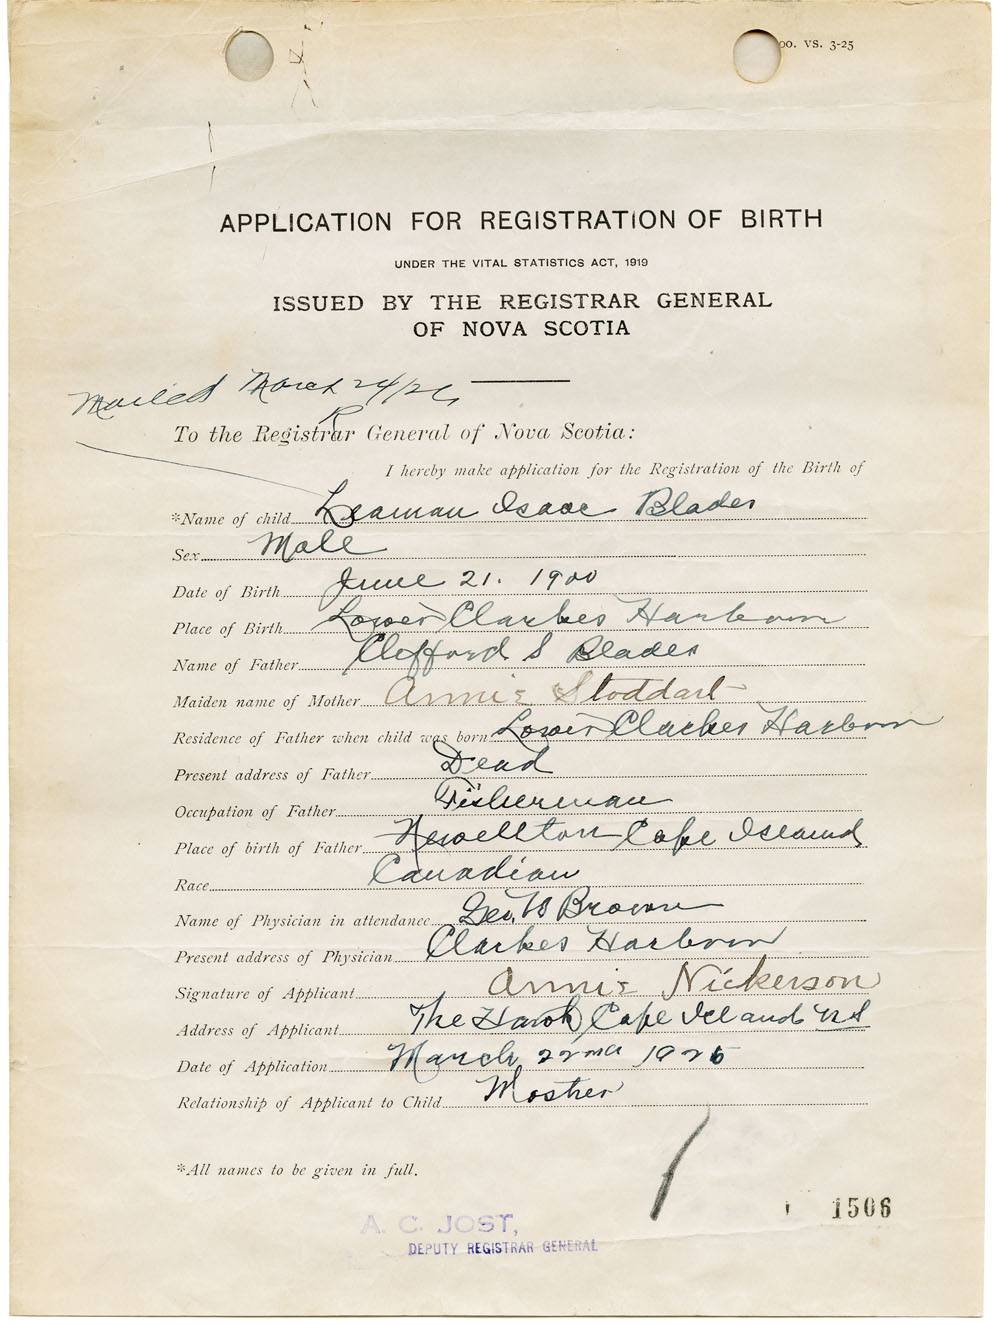 00. VS. 3-25
APPLICATION FOR REGISTRATION OF BIRTH
UNDER THE VITAL STATISTICS ACT, 1919
ISSUED BY THE REGISTRAR GENERAL
OF NOVA SCOTIA
Mailed March 24/26
To the Registrar General of Nova Scotia:
I hereby make application for the Registration of the Birth of
*Name of child Leaman Isaac Blades
Sex Male
Date of Birth June 21. 1900
Place of Birth Lower Clarkes Harbour
Name of Father Clifford S Blades
Maiden name of Mother Annie Stoddart
Residence of Father when child was born Lower Clarkes Harbour
Present address of Father Dead
Occupation of Father Fisherman
Place of birth of Father Newellton Cape Island
Race Canadian
Name of Physician in attendance Geo. W Brown
Present address of Physician Clarkes Harbour
Signature of Applicant Annie Nickerson
Address of Applicant The Hawk, Cape Island NS
Date of Application March 22nd 1926
Relationship of Applicant to Child Mother
*All names to be given in full.
1506
A. C. JOST,
DEPUTY REGISTRAR GENERAL